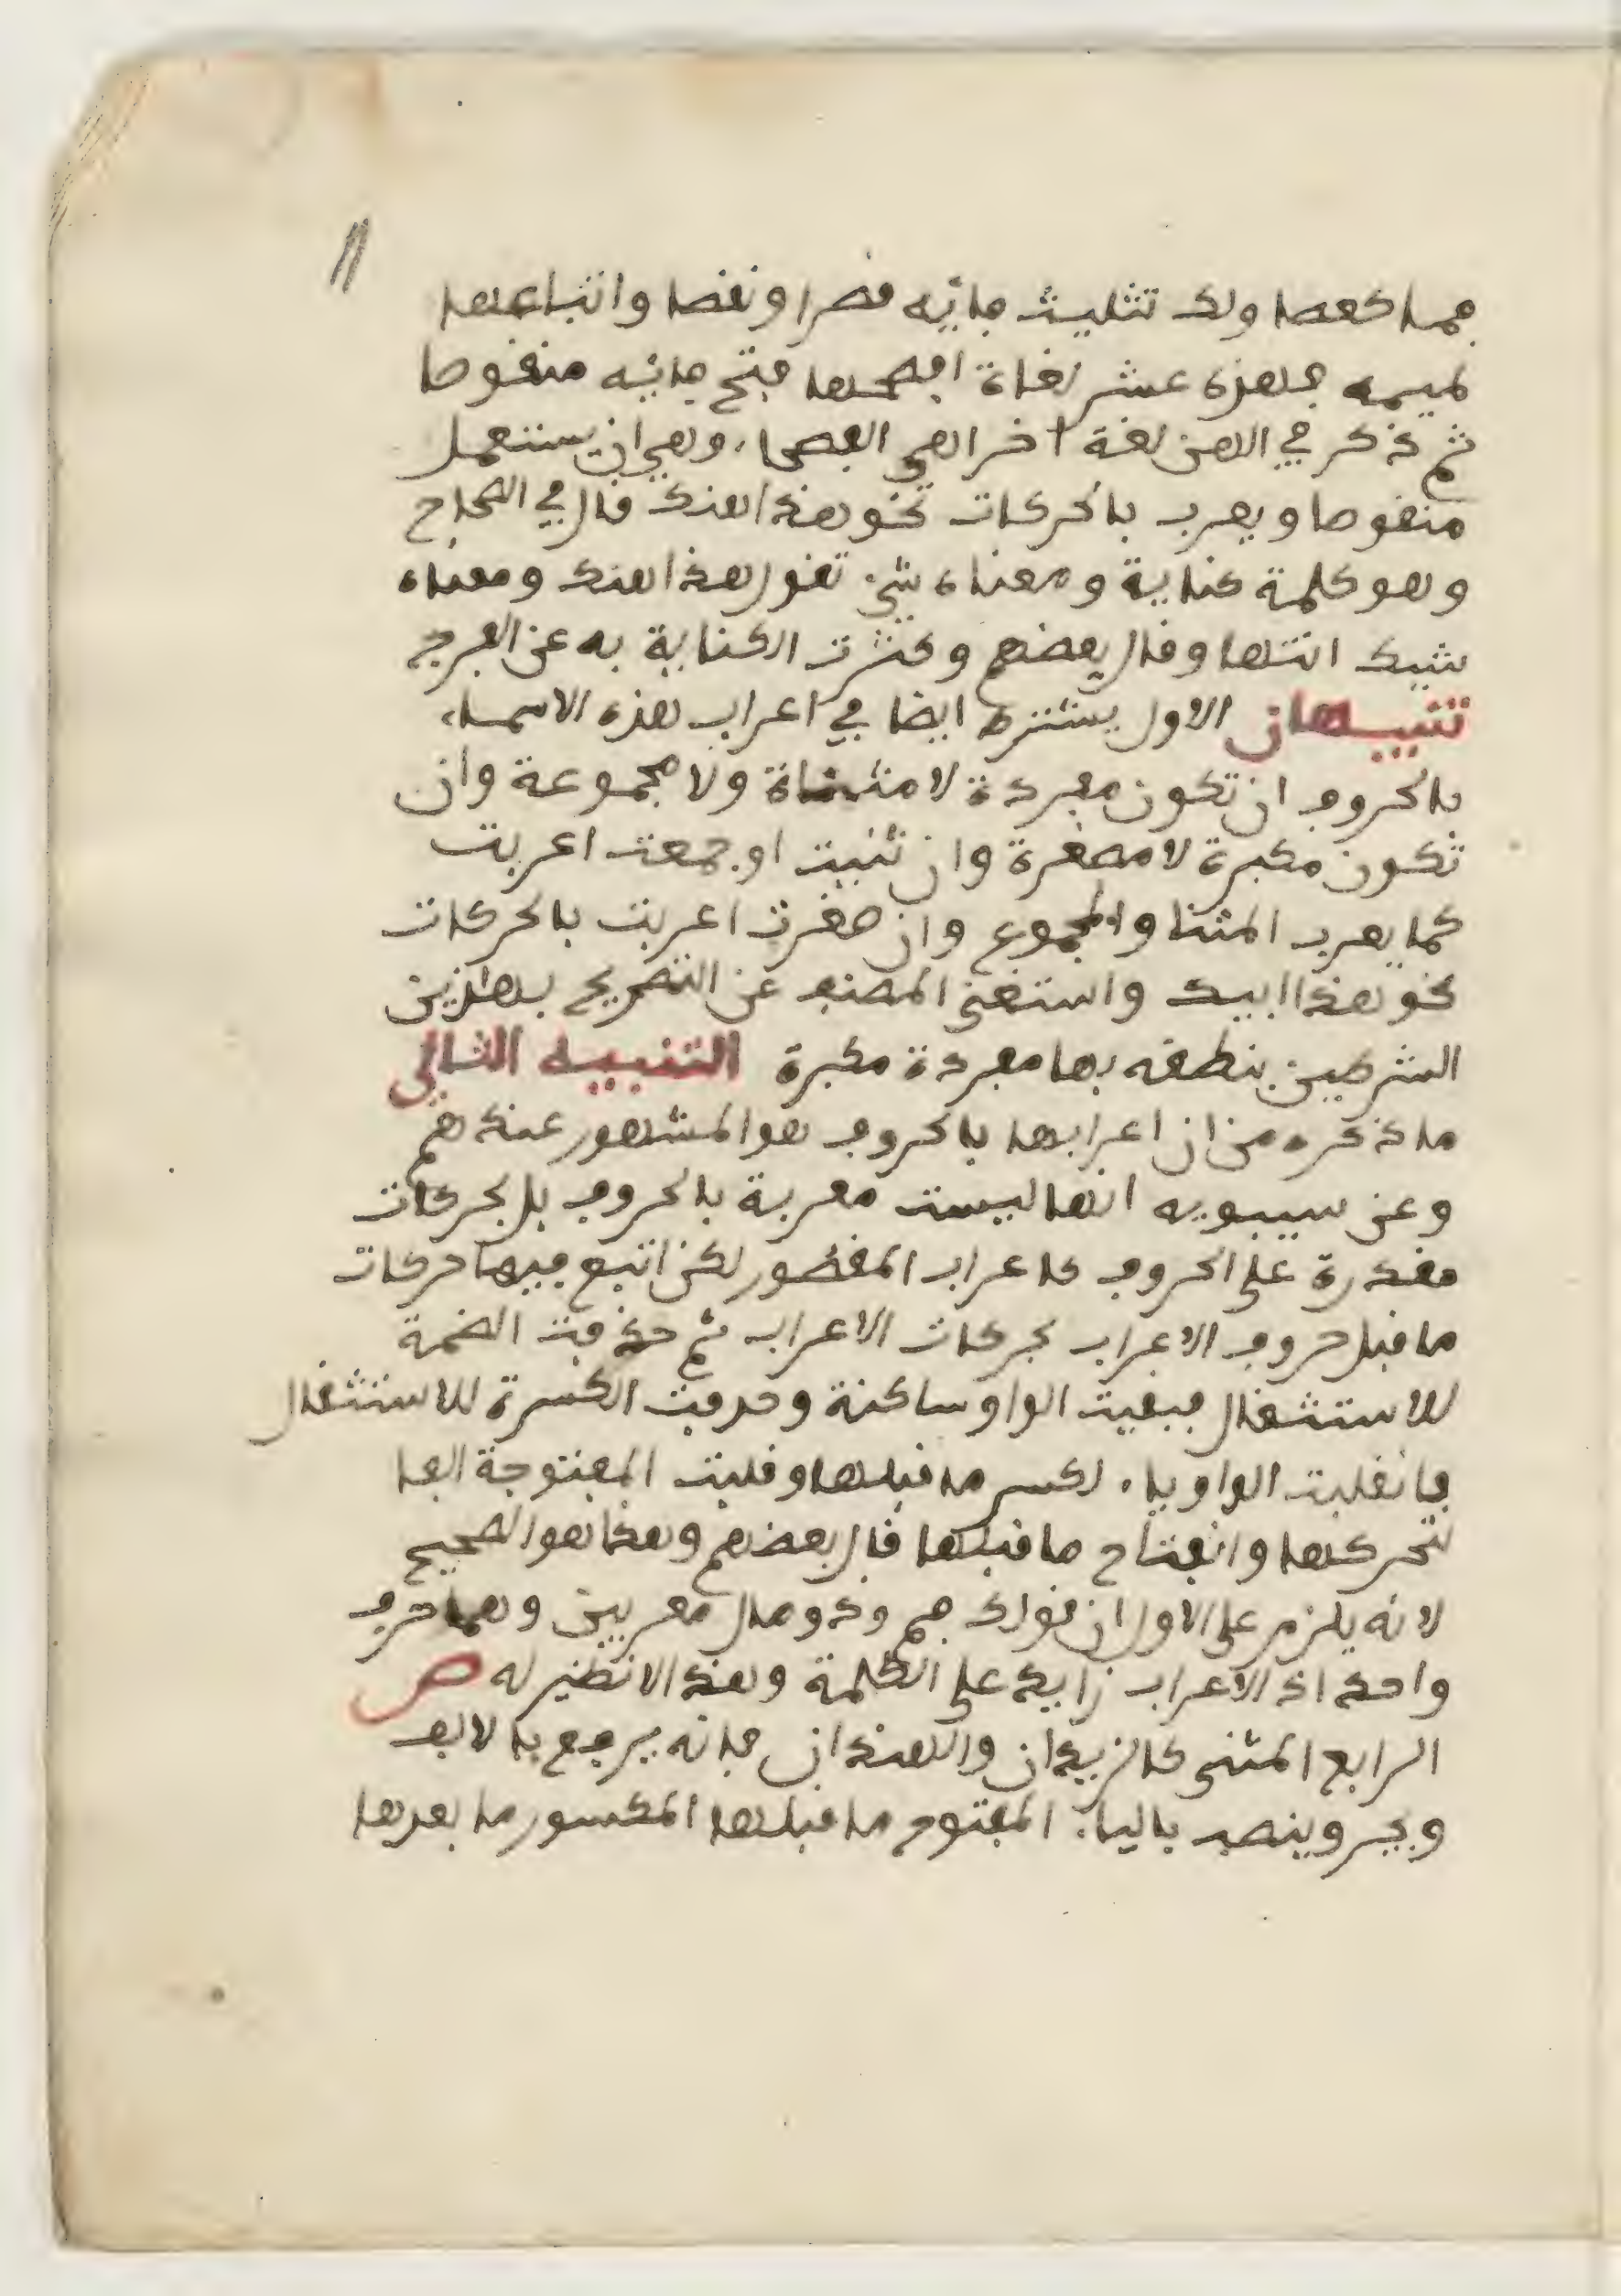 ١١
فما كعصا ولك تثليث فائه قصرا ونقصا واتباعها
لميمه فهذه عشر لغاة افصحها فتح فائه منقوصا
ثم ذكر في الهن لغة اخرا هي الفصحاء وهي ان يستعمل
منقوصا ويعرب بالحركات نحو هذا هنك قال في الصحاح
وهو كلمة كناية ومعناه شيء تقول هذا هنك ومعناه
شيك انتها وقال بعضهم وكثرت الكناية به عن الفرج
تنبيهان الاول يشترط ايضا في اعراب هذه الاسماء
بالحروف ان تكون مفردة لا مثناة ولا مجموعة وان
تكون مكبرة لا مصغرة وان ثنيت او جمعت اعربت
كما يعرب المثنا والمجموع وان صغرت اعربت بالحركات
نحو هذا ابيك واستغنى المصنف عن التصريح بهاذين
الشرطين بنطقه بها مفردة مكبرة التنبيه الثاني
ما ذكره من ان اعرابها بالحروف هو المشهور عندهم
وعن سيبويه انها ليست معربة بالحروف بل بحركات
مقدرة على الحروف كاعراب المقصور لكن اتبع فيها حركات
ما قبل حروف الاعراب بحركات الاعراب ثم حذفت الضمة
للاستثقال فبقيت الواو ساكنة وحدفت الكسرة للاستثقال
فانقلبت الواو ياء لكسر ما قبلها وقلبت المفتوحة الفا
لتحركها وانفتاح ما قبلها قال بعضهم وهذا هو الصحيح
لانه يلزم على الاول ان فوك فم وذو مال معربين وهما حرف
واحد اذ الاعراب زايد على الكلمة وهذا لا نظير له ص
الرابع المثنى كالزيدان والهندان فانه يرفع بالالف
ويجر وينصب بالياء المفتوح ما قبلها المكسور ما بعدها